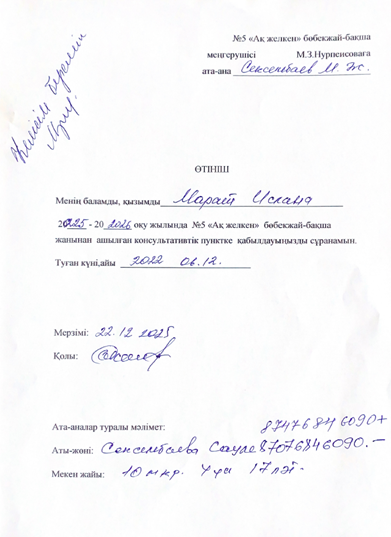 №5 «Ақ желкен» бөбекжай-бақша
меңгерушісі М.З.Нурпеисоваға
ата-ана Сексембаев М. Ж.
Келісім беремін
ӨТІНІШ
Менің баламды, қызымды Марат Ислана
2025 - 2026 оқу жылында №5 «Ақ желкен» бөбекжай-бақша
жанынан ашылған консультативтік пунктке қабылдауыңызды сұранамын.
Туған күні,айы 2022 06.12.
Мерзімі: 22.12 2025
Қолы:
Ата-аналар туралы мәлімет: 87476846090+
Аты-жөні: Сексембаева Сауле 87076846090.-
Мекен жайы: 10 мкр. 4 үй 17 пәт.